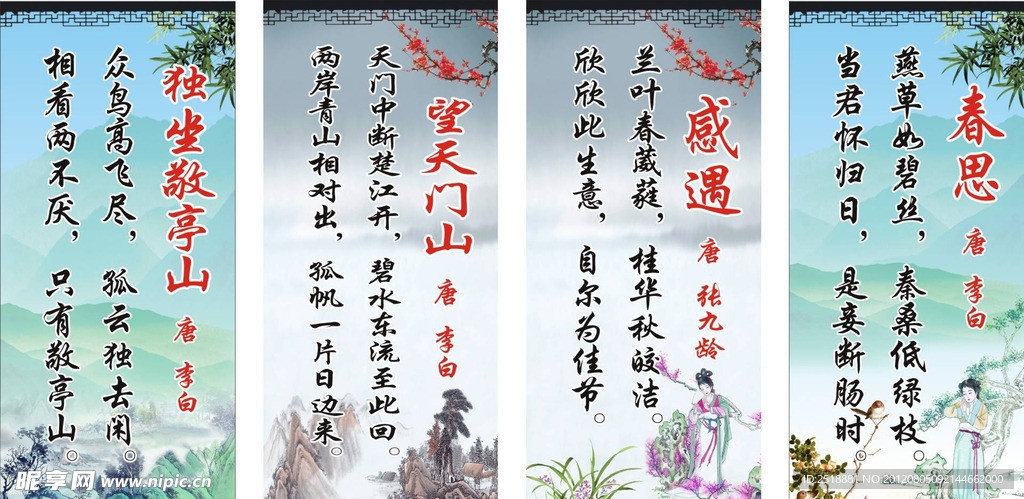 独坐敬亭山
唐 李白
众鸟高飞尽， 孤云独去闲。
相看两不厌， 只有敬亭山。
望天门山
唐 李白
天门中断楚江开， 碧水东流至此回。
两岸青山相对出， 孤帆一片日边来。
感遇
唐 张九龄
兰叶春葳蕤， 桂华秋皎洁。
欣欣此生意， 自尔为佳节。
春思
唐 李白
燕草如碧丝， 秦桑低绿枝。
当君怀归日， 是妾断肠时。
昵享网 www.nipic.cn
ID:2518881 NO:20120805092144662000